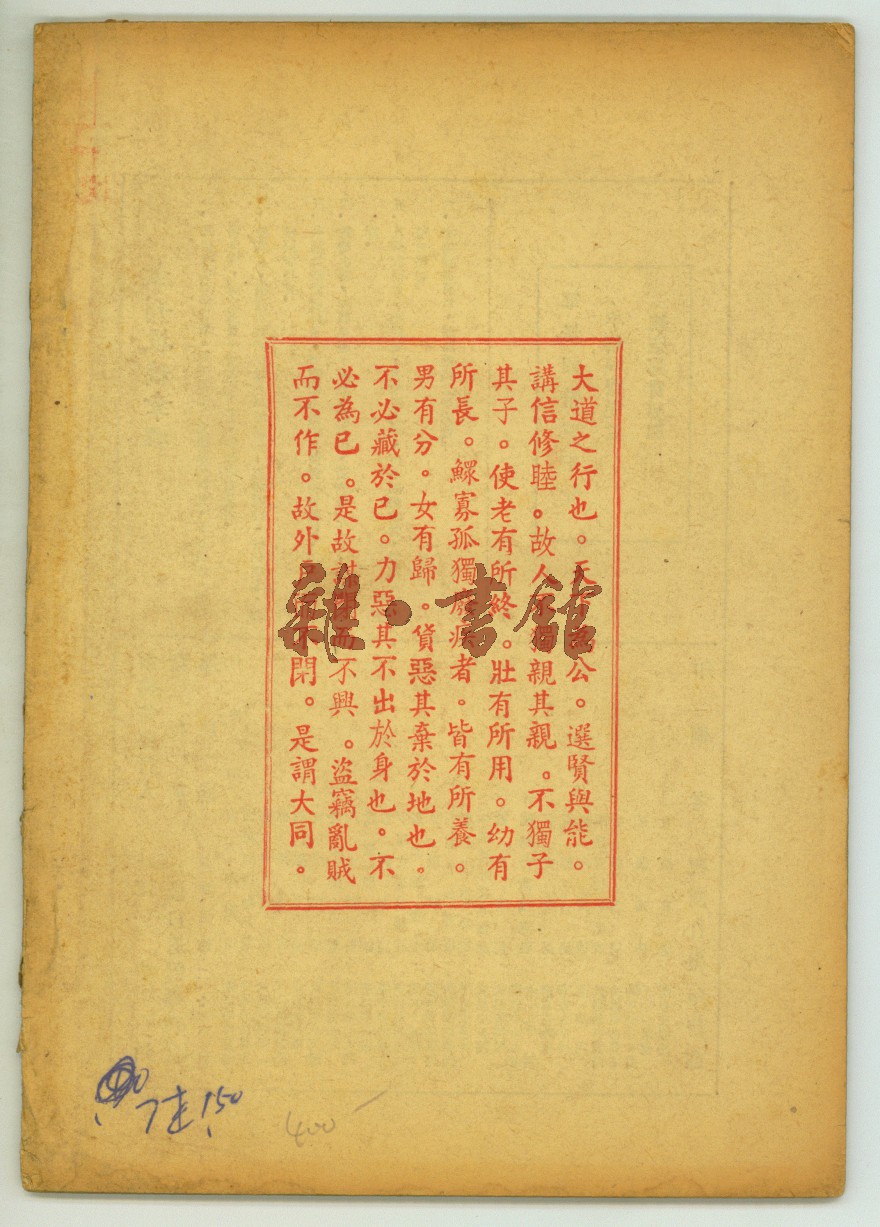 大道之行也。天下為公。選賢與能。
講信修睦。故人不獨親其親。不獨子
其子。使老有所終。壯有所用。幼有
所長。鰥寡孤獨廢疾者。皆有所養。
男有分。女有歸。貨惡其棄於地也。
不必藏於己。力惡其不出於身也。不
必為己。是故謀閉而不興。盜竊亂賊
而不作。故外戶而不閉。是謂大同。
雜·書館
150
400